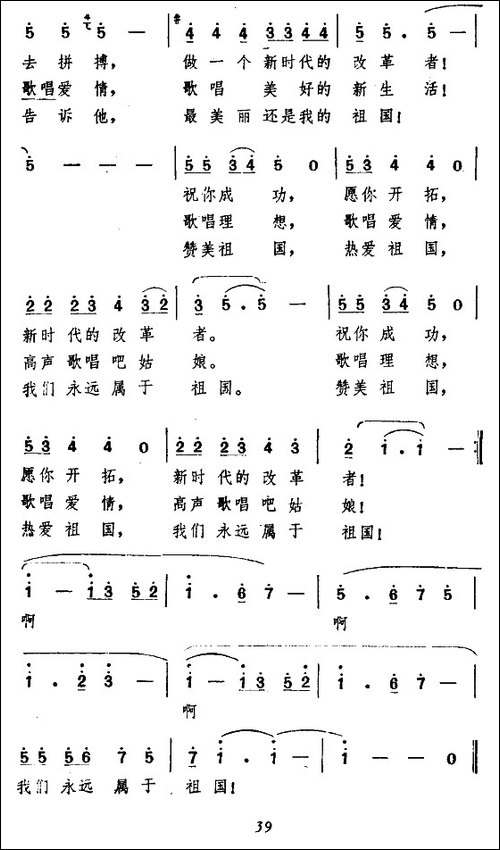 5 5 5 — | 4 4 4 3 3 4 4 | 5 5 . 5 — |
去拼搏， 做一个新时代的改革者！
歌唱爱情， 歌唱美好的新生活！
告诉他， 最美丽还是我的祖国！
5 — — — | 5 5 3 4 5 0 | 5 3 4 4 0 |
祝你成功， 愿你开拓，
歌唱理想， 歌唱爱情，
赞美祖国， 热爱祖国，
2 2 2 3 4 3 2 | 3 5 . 5 — | 5 5 3 4 5 0 |
新时代的改革者。 祝你成功，
高声歌唱吧姑娘。 歌唱理想，
我们永远属于祖国。 赞美祖国，
5 3 4 4 0 | 2 2 2 3 4 3 | 2 1 . 1 — :|
愿你开拓， 新时代的改革者！
歌唱爱情， 高声歌唱吧姑娘！
热爱祖国， 我们永远属于祖国！
1 — 1 3 5 2 | 1 . 6 7 — | 5 . 6 7 5 |
啊 啊
1 . 2 3 — | 1 — 1 3 5 2 | 1 . 6 7 — |
啊
5 5 5 6 7 5 | 7 1 . 1 — | 1 — — 0 ‖
我们永远属于祖国！
39